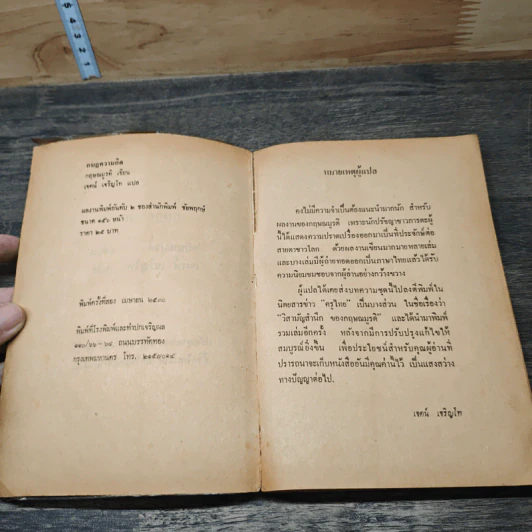 5
4
3
2
1
กบฏความคิด
กฤษณมูรติ เขียน
เจคน์ เจริญโท แปล
ผลงานพิมพ์อันดับ ๒ ของสำนักพิมพ์ ชัยพฤกษ์
ขนาด ๑๕๖ หน้า
ราคา ๒๕ บาท
พิมพ์ครั้งที่สอง เมษายน
พิมพ์ที่โรงพิมพ์และทำปกเจริญผล
ถนนบรรทัดทอง
กรุงเทพมหานคร โทร.
หมายเหตุผู้แปล
คงไม่มีความจำเป็นต้องแนะนำมากนัก สำหรับ
ผลงานของกฤษณมูรติ เพราะนักปรัชญาชาวภารตะผู้
นี้ได้แสดงความปราดเปรื่องออกมาเป็นที่ประจักษ์ต่อ
สายตาชาวโลก ด้วยผลงานเขียนมากมายหลายเล่ม
และบางเล่มมีผู้ถ่ายทอดออกเป็นภาษาไทยแล้วได้รับ
ความนิยมชมชอบจากผู้อ่านอย่างกว้างขวาง
ผู้แปลได้เคยส่งบทความชุดนี้ไปลงตีพิมพ์ใน
นิตยสารข่าว "ครูไทย" เป็นบางส่วน ในชื่อเรื่องว่า
"วิสามัญสำนึก ของกฤษณมูรติ" และได้นำมาพิมพ์
รวมเล่มอีกครั้ง หลังจากมีการปรับปรุงแก้ไขให้
สมบูรณ์ยิ่งขึ้น เพื่อประโยชน์สำหรับคุณผู้อ่านที่
ปรารถนาจะเก็บหนังสืออันมีคุณค่านี้ไว้ เป็นแสงสว่าง
ทางปัญญาต่อไป.
เจคน์ เจริญโท